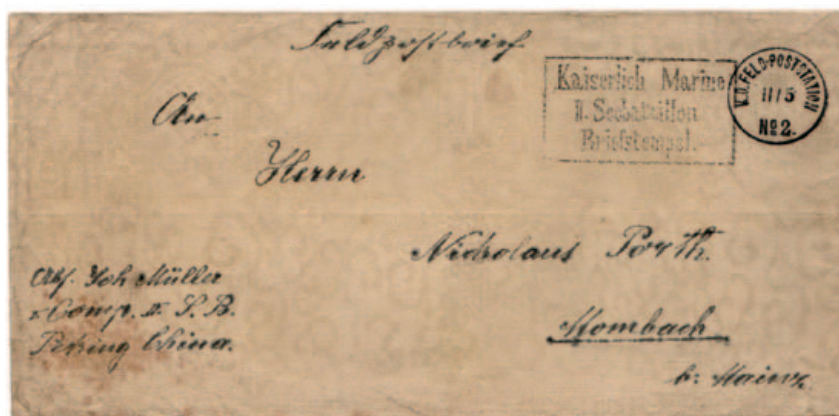 Feldpostbrief
Kaiserlich Marine
II. Seebataillon
Briefstempel.
K.D. FELD-POSTSTATION
11/5
No 2.
An
Herrn
Nickolaus Porth.
Mombach
b. Mainz
Abs. Joh Müller
Comp. II. S. B.
Peking China.